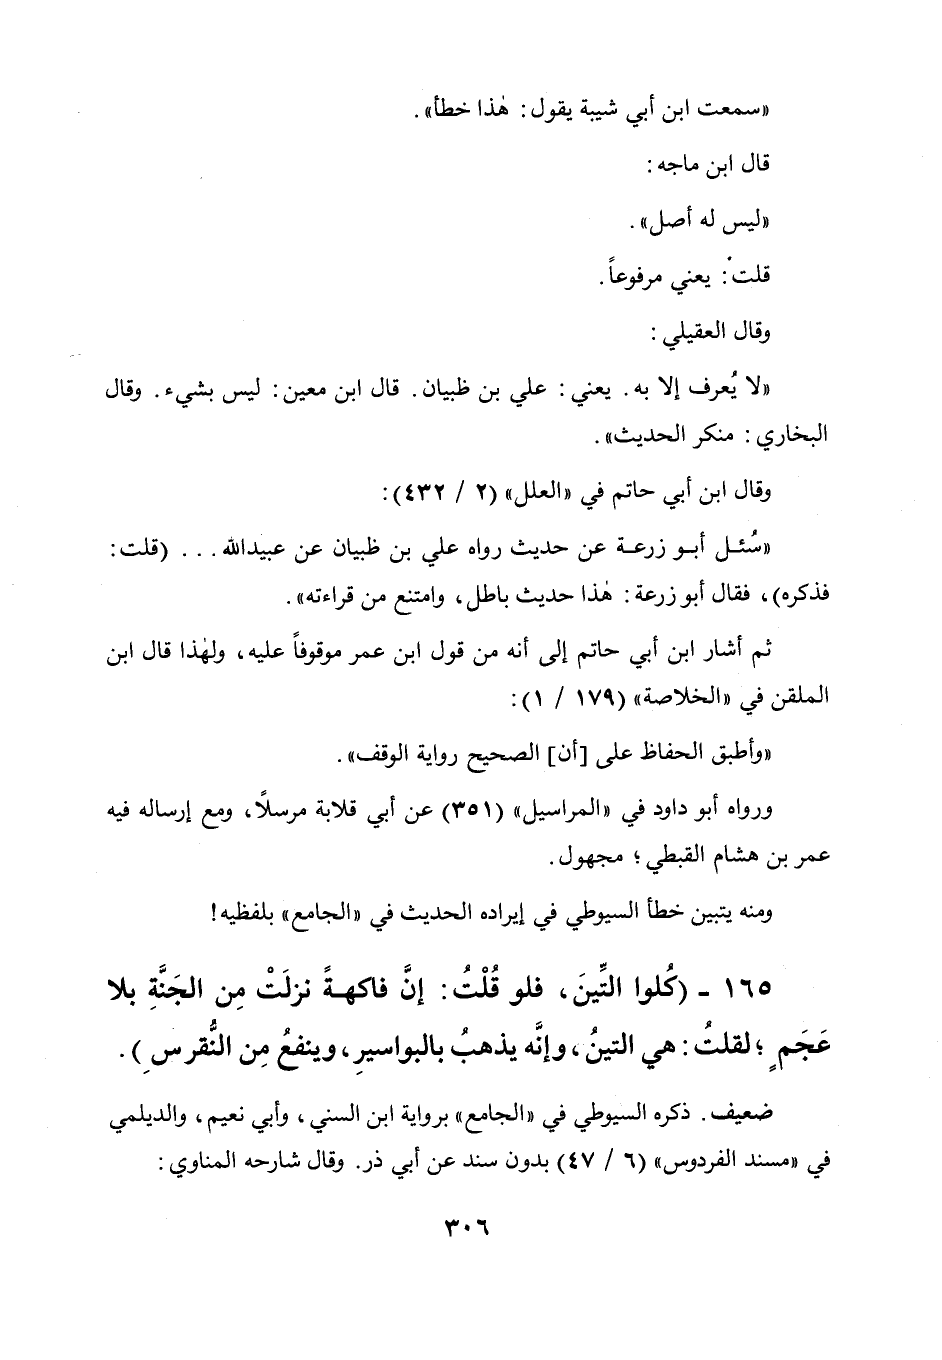 «سمعت ابن أبي شيبة يقول: هٰذا خطأ».
قال ابن ماجه:
«ليس له أصل».
قلتُ: يعني مرفوعاً.
وقال العقيلي:
«لا يُعرف إلا به. يعني: علي بن ظبيان. قال ابن معين: ليس بشيء. وقال
البخاري: منكر الحديث».
وقال ابن أبي حاتم في «العلل» (٢ / ٤٣٢):
«سُئل أبو زرعة عن حديث رواه علي بن ظبيان عن عبيدالله ... (قلت:
فذكره)، فقال أبو زرعة: هٰذا حديث باطل، وامتنع من قراءته».
ثم أشار ابن أبي حاتم إلى أنه من قول ابن عمر موقوفاً عليه، ولهٰذا قال ابن
الملقن في «الخلاصة» (١٧٩ / ١):
«وأطبق الحفاظ على [أن] الصحيح رواية الوقف».
ورواه أبو داود في «المراسيل» (٣٥١) عن أبي قلابة مرسلاً، ومع إرساله فيه
عمر بن هشام القبطي؛ مجهول.
ومنه يتبين خطأ السيوطي في إيراده الحديث في «الجامع» بلفظيه!
١٦٥ - (كُلوا التِّينَ، فلو قُلْتُ: إنَّ فاكهةً نزلَتْ مِن الجَنَّةِ بلا
عَجَمٍ؛ لقلتُ: هي التينُ، وإنَّه يذهبُ بالبواسيرِ، وينفعُ مِن النُّقرسِ).
ضعيف. ذكره السيوطي في «الجامع» برواية ابن السني، وأبي نعيم، والديلمي
في «مسند الفردوس» (٦ / ٤٧) بدون سند عن أبي ذر. وقال شارحه المناوي:
٣٠٦